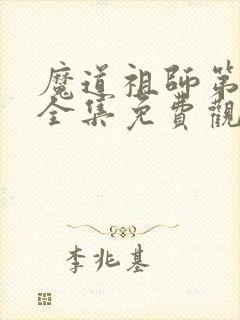 魔道祖師第
全集免費觀
李兆基